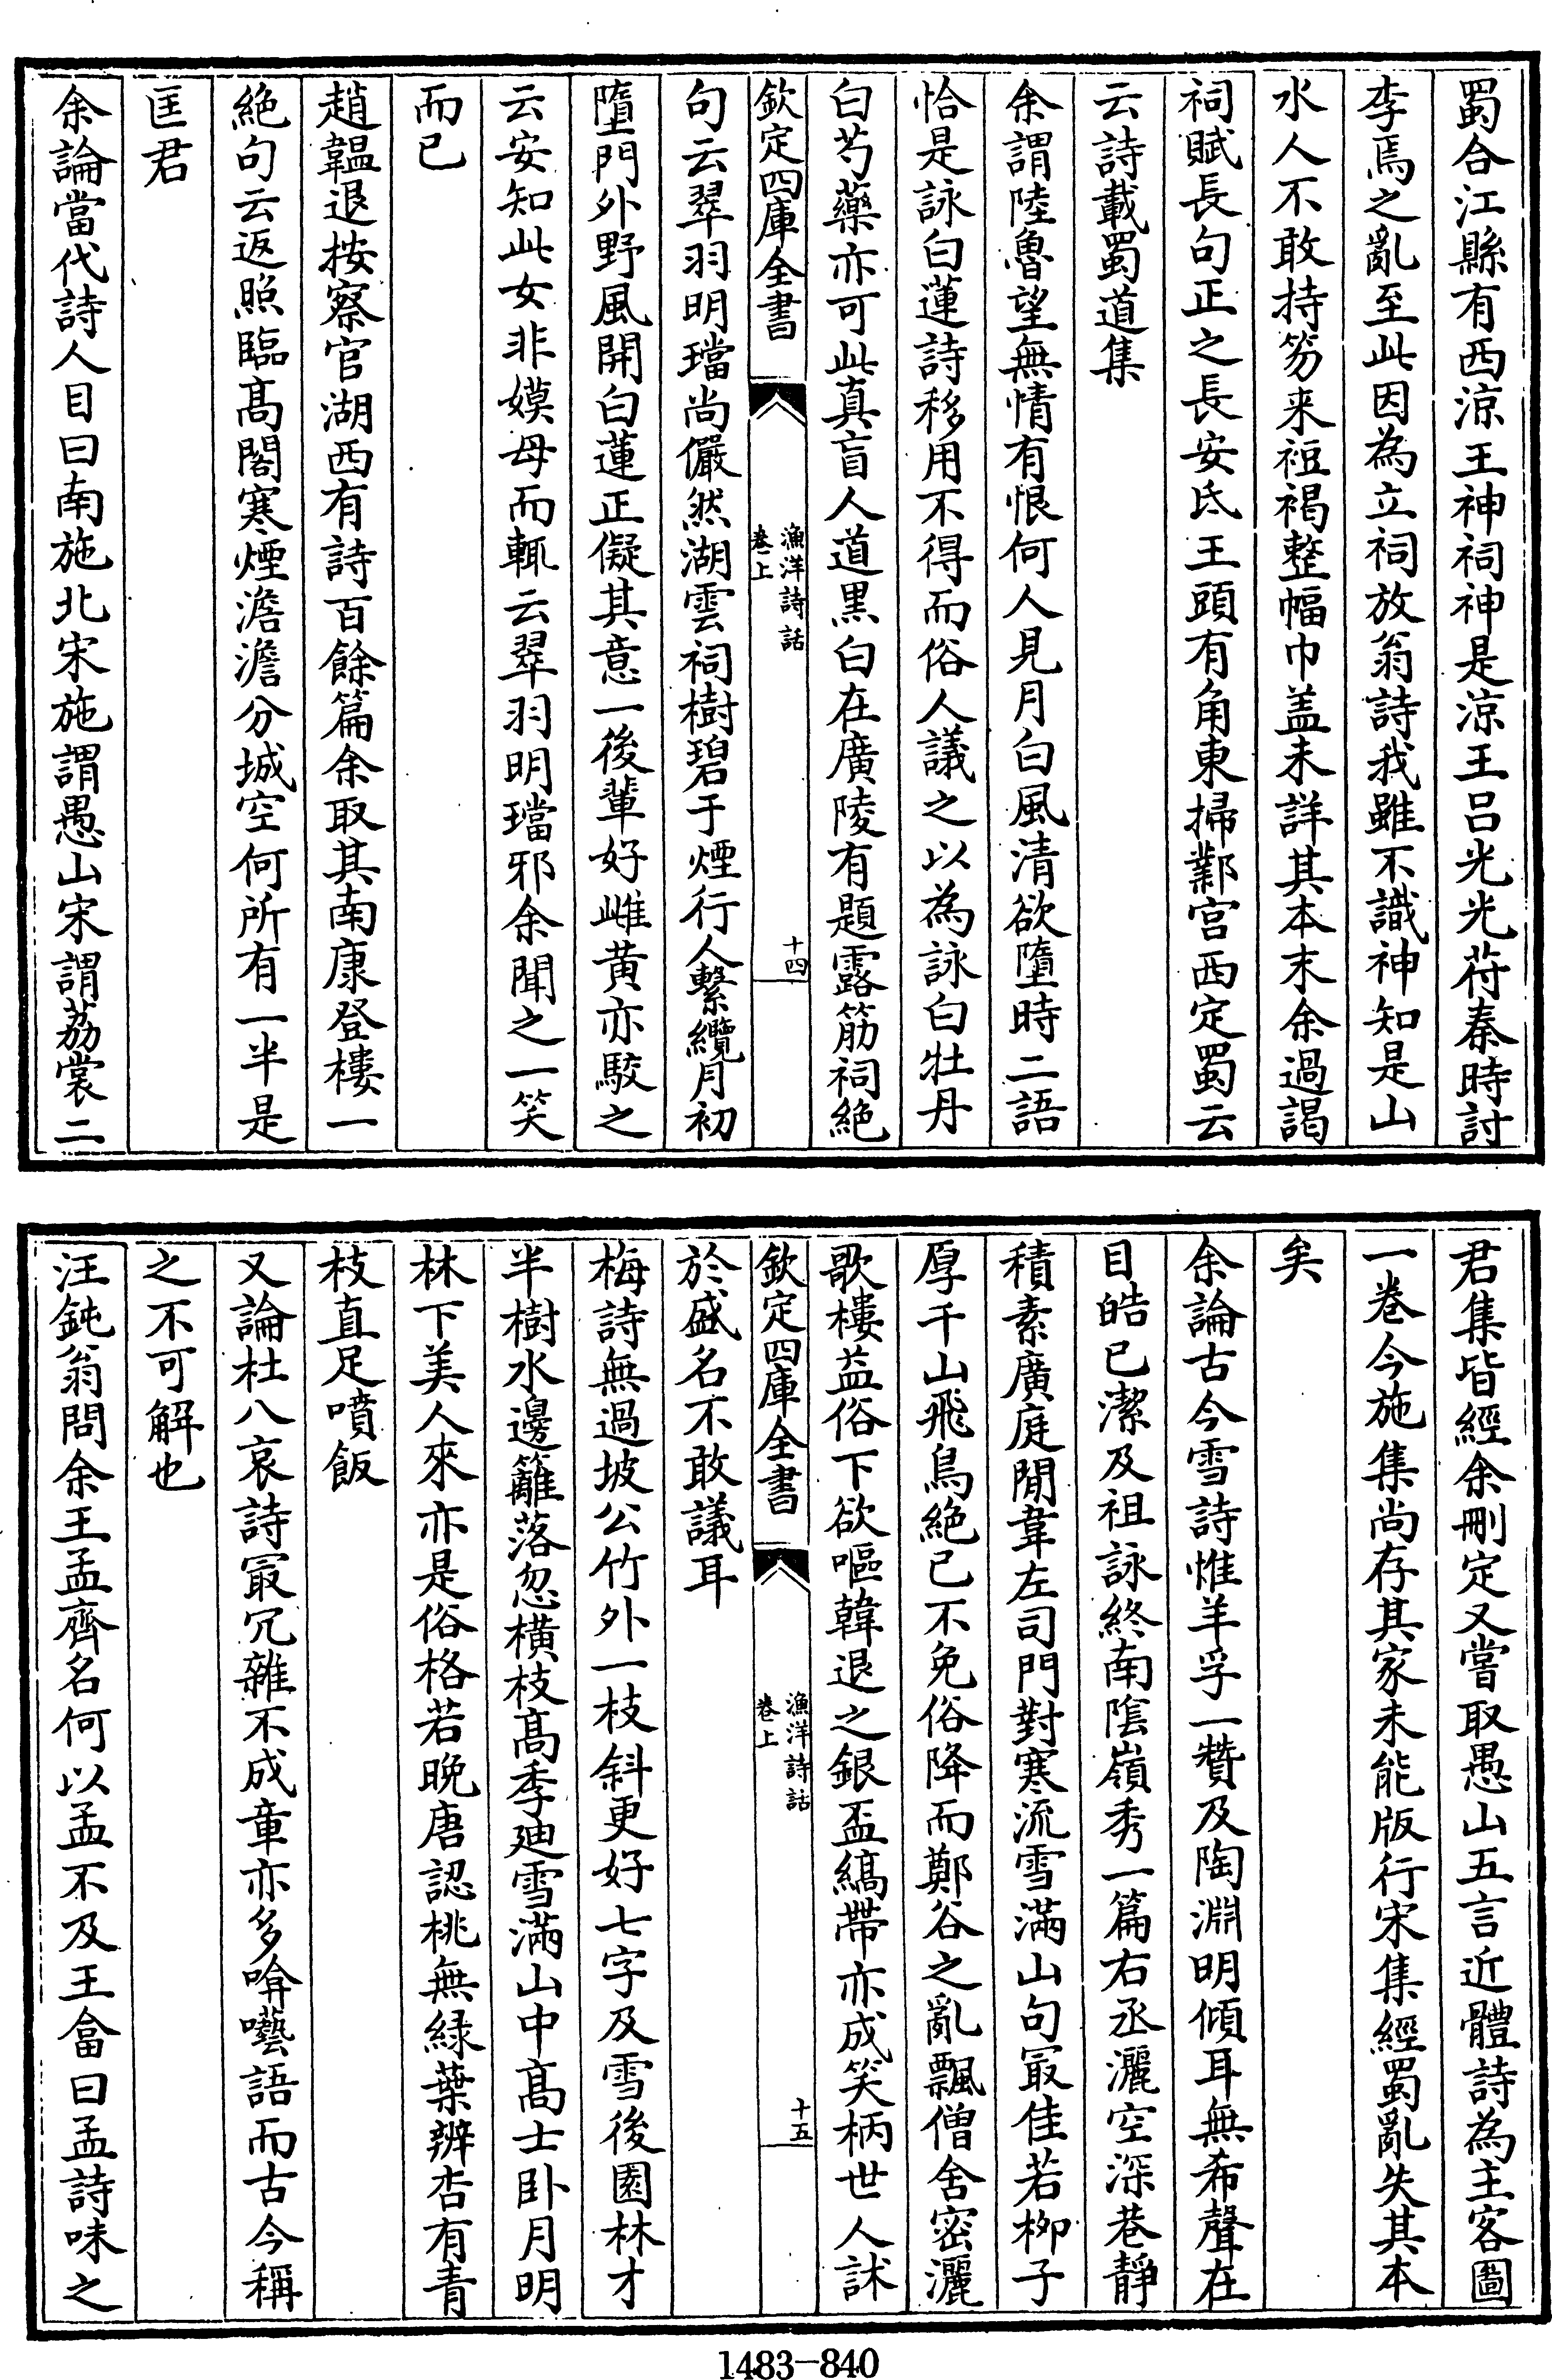 蜀合江縣有西涼王神祠神是涼王呂光光苻秦時討
李焉之亂至此因為立祠放翁詩我雖不識神知是山
水人不敢持笏来裋褐整幅巾盖未詳其本末余過謁
祠賦長句正之長安氐王頭有角東掃鄴宫西定蜀云
云詩載蜀道集
余謂陸魯望無情有恨何人見月白風清欲墮時二語
恰是詠白蓮詩移用不得而俗人議之以為詠白牡丹
白芍藥亦可此真盲人道黒白在廣陵有題露筋祠絶
欽定四庫全書
漁洋詩話
卷上
十四
句云翠羽明璫尚儼然湖雲祠樹碧于煙行人繫纜月初
墮門外野風開白蓮正儗其意一後輩好雌黄亦駮之
云安知此女非嫫母而輒云翠羽明璫邪余聞之一笑
而已
趙韞退按察官湖西有詩百餘篇余取其南康登樓一
絶句云返照臨髙閣寒煙澹澹分城空何所有一半是
匡君
余論當代詩人目曰南施北宋施謂愚山宋謂荔裳二
君集皆經余刪定又嘗取愚山五言近體詩為主客圖
一卷今施集尚存其家未能版行宋集經蜀亂失其本
矣
余論古今雪詩惟羊孚一贊及陶淵明傾耳無希聲在
目皓已潔及祖詠終南隂嶺秀一篇右丞灑空深巷靜
積素廣庭閒韋左司門對寒流雪滿山句㝡佳若栁子
厚千山飛鳥絶已不免俗降而鄭谷之亂飄僧舍密灑
歌樓益俗下欲嘔韓退之銀盃縞帶亦成笑柄世人訹
欽定四庫全書
漁洋詩話
卷上
十五
於盛名不敢議耳
梅詩無過坡公竹外一枝斜更好七字及雪後園林才
半樹水邊籬落忽横枝髙季廸雪滿山中髙士卧月明
林下美人來亦是俗格若晚唐認桃無緑葉辨杏有青
枝直足噴飯
又論杜八哀詩㝡冗雜不成章亦多啽囈語而古今稱
之不可解也
汪鈍翁問余王孟齊名何以孟不及王畣曰孟詩味之
1483-840